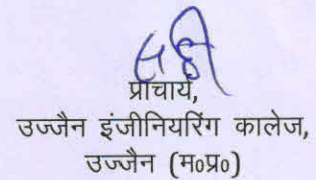 सही
प्राचार्य,
उज्जैन इंजीनियरिंग कालेज,
उज्जैन (म०प्र०)